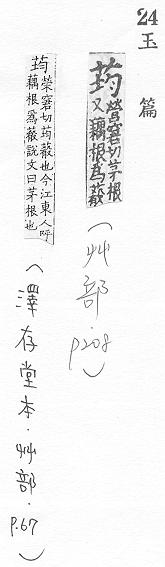 24
玉篇
荺榮窘切茅根
又藕根爲蔽
(艸部.p208)
荺榮窘切荺蔽也今江東人呼
藕根爲蔽說文曰茅根也
(澤存堂本.艸部.p.67)